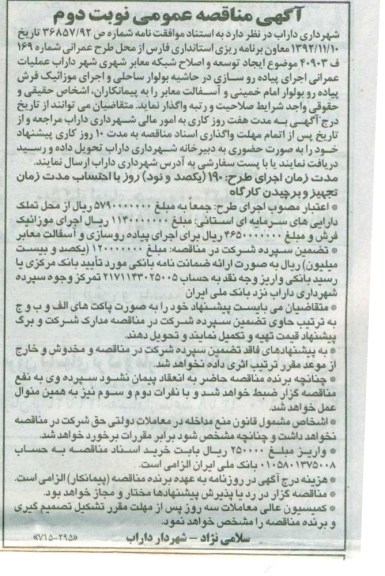 آگهی مناقصه عمومی نوبت دوم
شهرداری داراب در نظر دارد به استناد موافقت نامه شماره ص ۳۶۸۵۷/۹۲ تاریخ
۱۳۹۲/۱۱/۱۰ معاون برنامه ریزی استانداری فارس از محل طرح عمرانی شماره ۱۶۹
ف ۴۰۹۰۳ موضوع ایجاد توسعه و اصلاح شبکه معابر شهری شهر داراب عملیات
عمرانی اجرای پیاده رو سازی در حاشیه بولوار ساحلی و اجرای موزائیک فرش
پیاده رو بولوار امام خمینی و آسفالت معابر را به پیمانکاران، اشخاص حقیقی و
حقوقی واجد شرایط صلاحیت و رتبه واگذار نماید. متقاضیان می توانند از تاریخ
درج آگهی به مدت هفت روز کاری به امور مالی شهرداری داراب مراجعه و از
تاریخ پس از اتمام مهلت واگذاری اسناد مناقصه به مدت ۱۰ روز کاری پیشنهاد
خود را به صورت حضوری به دبیرخانه شهرداری داراب تحویل داده و رسید
دریافت نمایند یا با پست سفارشی به آدرس شهرداری داراب ارسال نمایند.
مدت زمان اجرای طرح: ۱۹۰ (یکصد و نود) روز با احتساب مدت زمان
تجهیز و برچیدن کارگاه
* اعتبار مصوب اجرای طرح: جمعاً به مبلغ ۵۷۹۰۰۰۰۰۰۰ ریال از محل تملک
دارایی های سرمایه ای استانی: مبلغ ۱۱۴۰۰۰۰۰۰۰ ریال اجرای موزائیک
فرش و مبلغ ۴۶۵۰۰۰۰۰۰۰ ریال برای اجرای پیاده روسازی و آسفالت معابر
* تضمین سپرده شرکت در مناقصه: مبلغ ۱۲۰۰۰۰۰۰۰ (یکصد و بیست
میلیون) ریال به صورت ارائه ضمانت نامه بانکی مورد تأیید بانک مرکزی یا
رسید بانکی واریز وجه نقد به حساب ۲۱۷۱۱۴۳۰۲۵۰۰۵ تمرکز وجوه سپرده
شهرداری داراب نزد بانک ملی ایران
* متقاضیان می بایست پیشنهاد خود را به صورت پاکت های الف و ب و ج
به ترتیب حاوی تضمین سپرده شرکت در مناقصه مدارک شرکت و برگ
پیشنهاد قیمت تهیه و تکمیل نمایند و تحویل دهند.
* به پیشنهادهای فاقد تضمین سپرده شرکت در مناقصه و مخدوش و خارج
از موعد مقرر ترتیب اثری داده نخواهد شد.
* چنانچه برنده مناقصه حاضر به انعقاد پیمان نشود سپرده وی به نفع
مناقصه گزار ضبط خواهد شد و با نفرات دوم و سوم نیز به همین منوال
عمل خواهد شد.
* اشخاص مشمول قانون منع مداخله در معاملات دولتی حق شرکت در مناقصه
نخواهد داشت و چنانچه مشخص شود برابر مقررات برخورد خواهد شد.
* واریز مبلغ ۲۵۰۰۰۰ ریال بابت خرید اسناد مناقصه به حساب
۰۱۰۵۸۰۱۳۷۵۰۰۸ بانک ملی ایران الزامی است.
* هزینه درج آگهی در روزنامه به عهده برنده مناقصه (پیمانکار) الزامی است.
* مناقصه گزار در رد یا پذیرش پیشنهادها مختار و مجاز خواهد بود.
* کمیسیون عالی معاملات سه روز پس از مهلت مقرر تشکیل تصمیم گیری
و برنده مناقصه را مشخص خواهد نمود.
سلامی نژاد - شهردار داراب
«۷۱۵-۲۹۵»